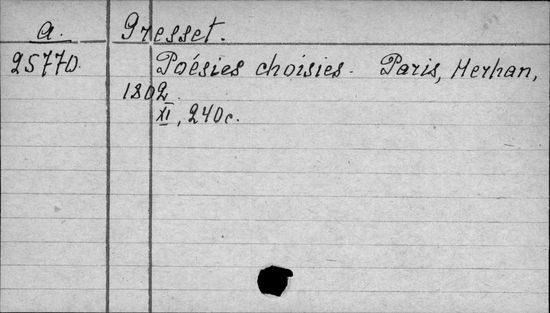 a. Gresset.
25770. Poésies choisies. Paris, Herhan,
1802.
XI, 240c.